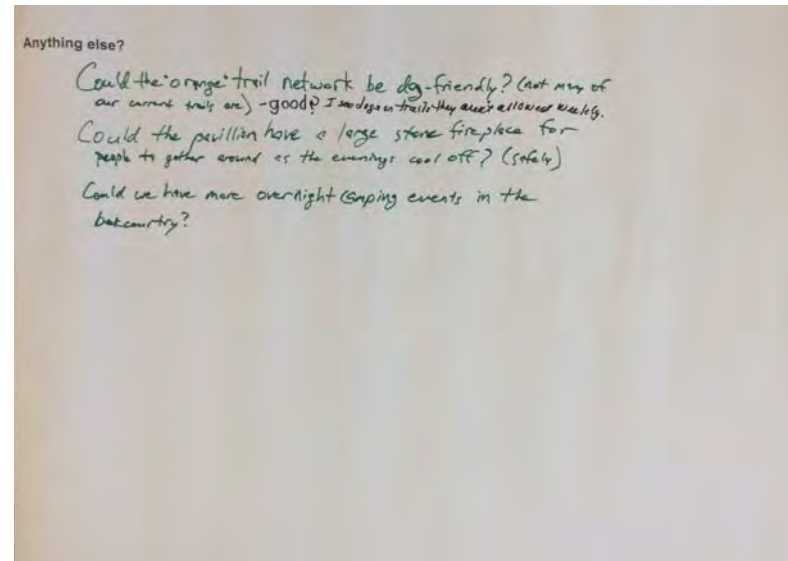 Anything else?
Could the "orange" trail network be dog-friendly? (not many of
our current trails are) -good? I see dogs on trails they aren't allowed weekly.
Could the pavillion have a large stone fireplace for
people to gather around as the evenings cool off? (safely)
Could we have more overnight camping events in the
backcountry?